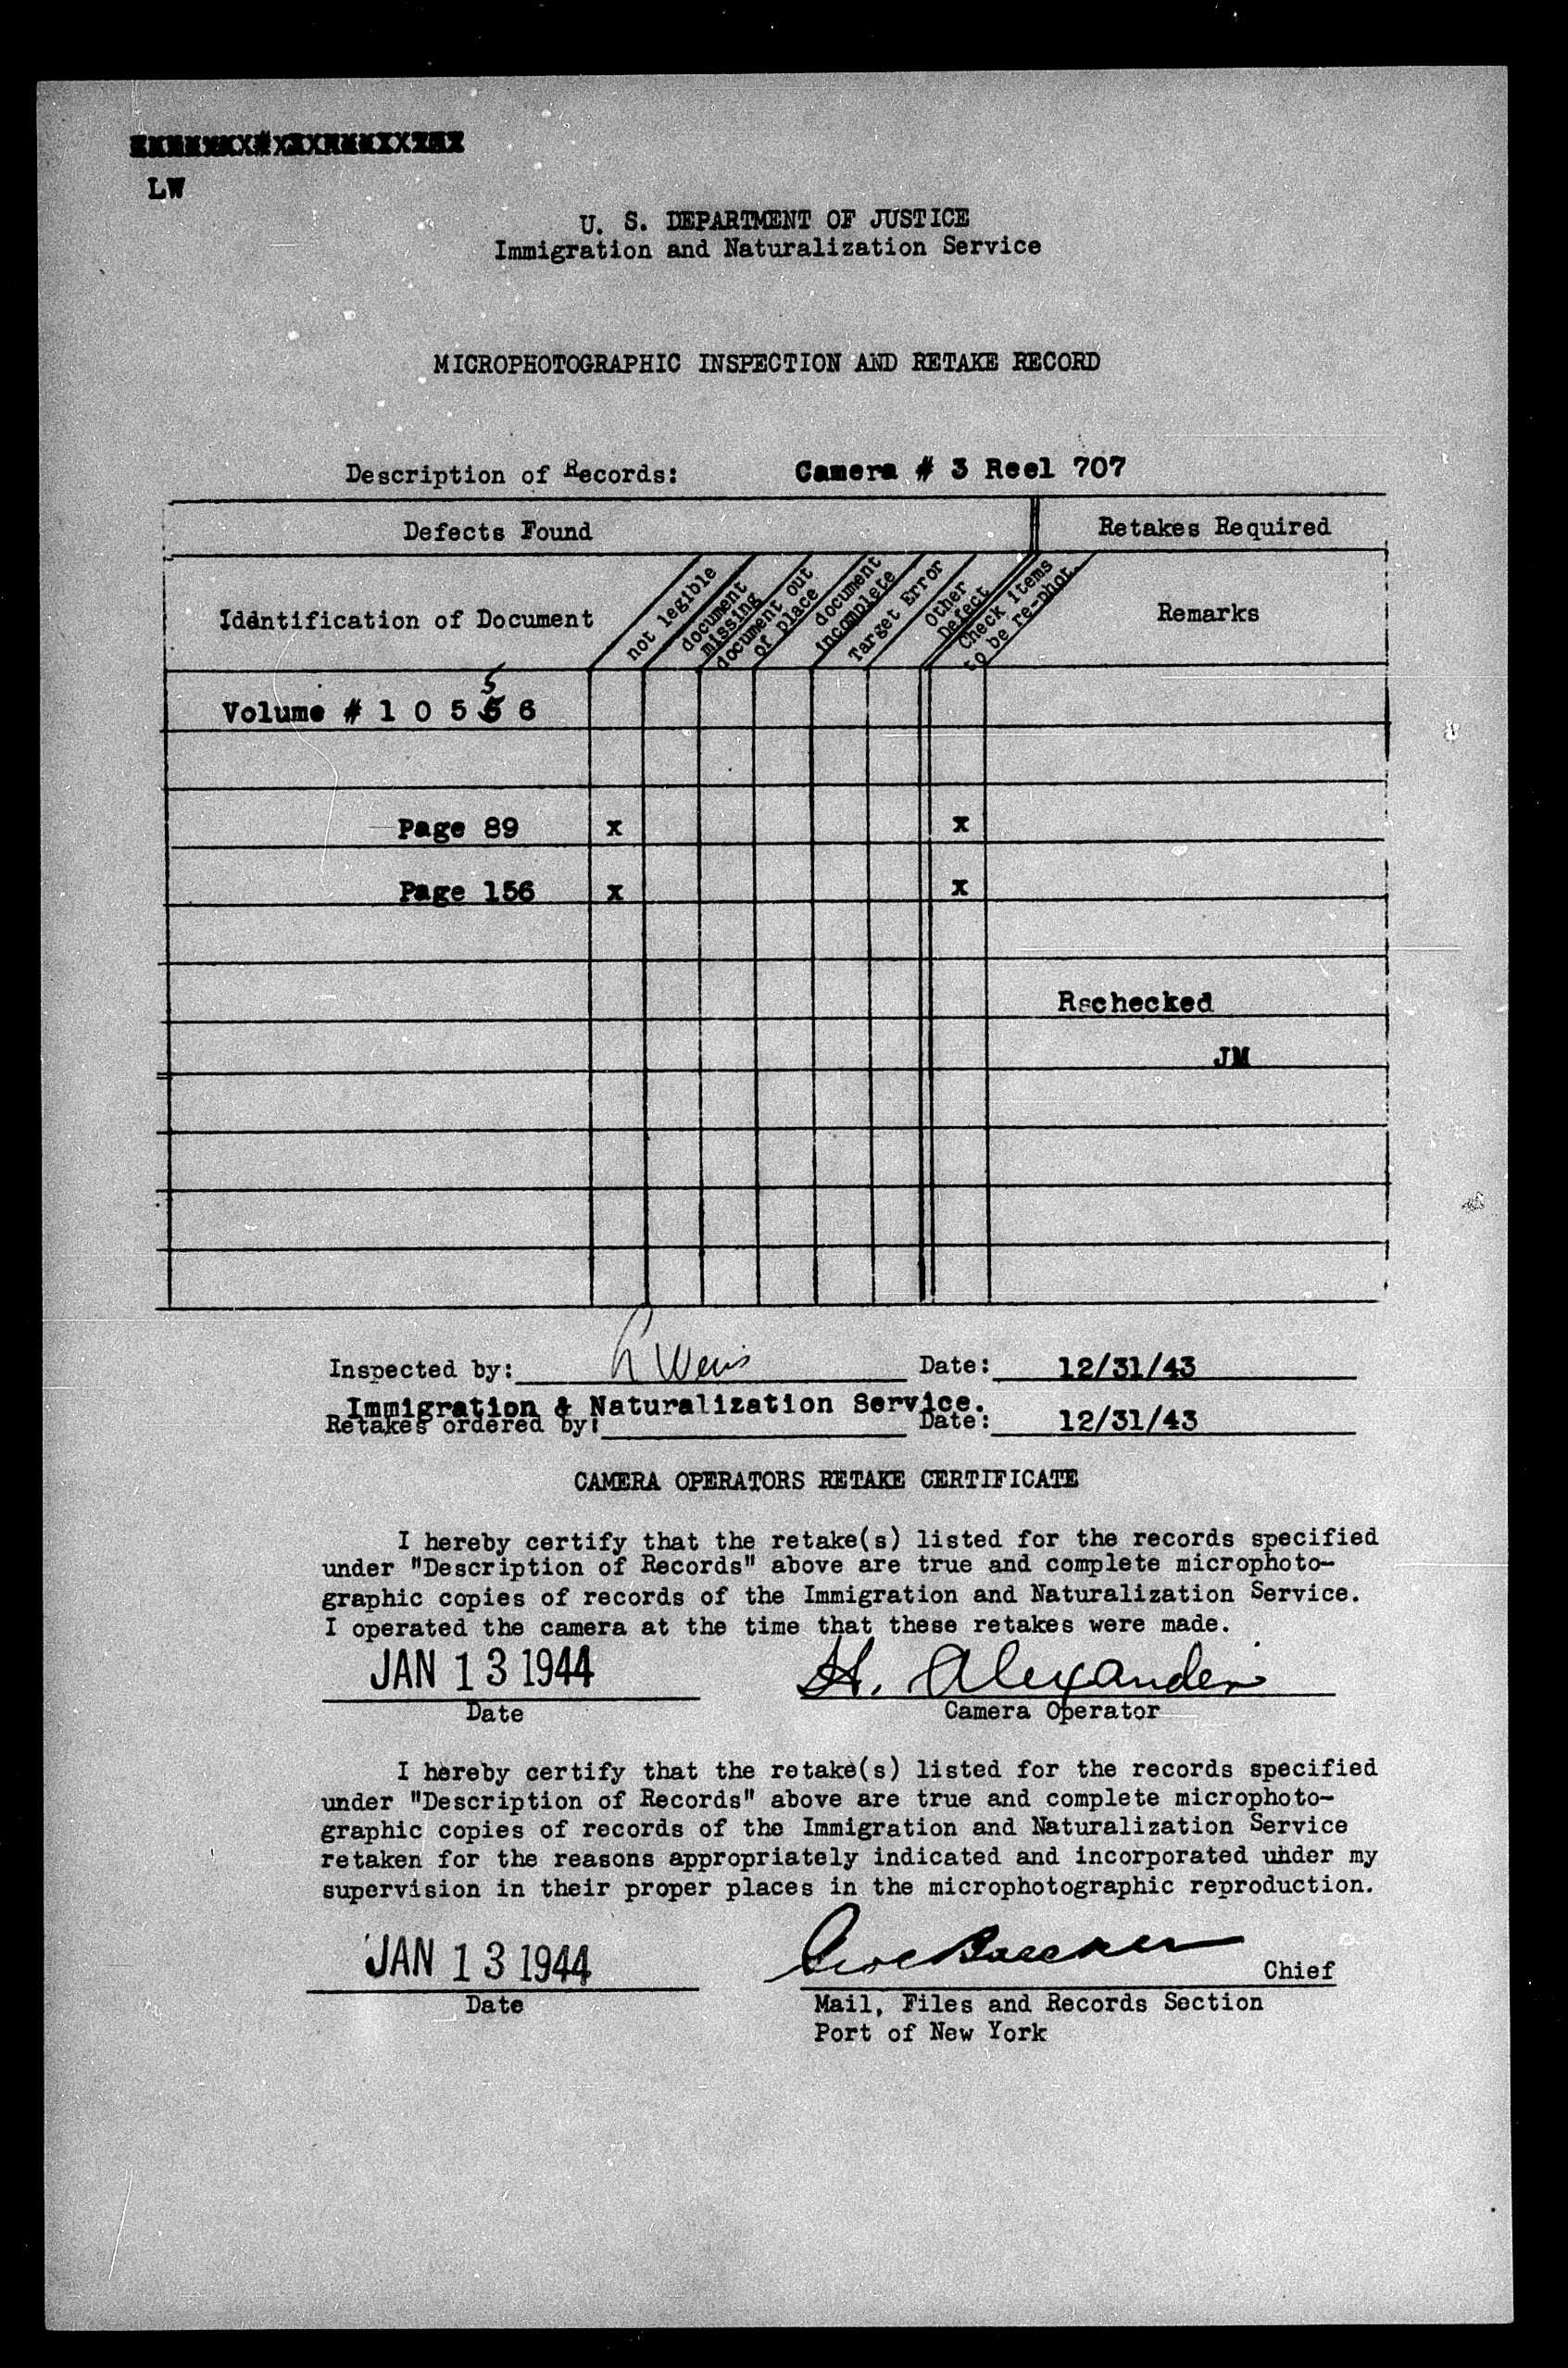 LW
U. S. DEPARTMENT OF JUSTICE
Immigration and Naturalization Service
MICROPHOTOGRAPHIC INSPECTION AND RETAKE RECORD
Description of Records: Camera # 3 Reel 707
Defects Found Retakes Required
Identification of Document
not legible
document
missing
document out
of place
document
incomplete
Target Error
Other
Defect
Check items
to be re-phot.
Remarks
5
Volume # 1 0 5 6 6
Page 89 x x
Page 156 x x
Rechecked
JM
Inspected by: Date: 12/31/43
Immigration & Naturalization Service.
Retakes ordered by: Date: 12/31/43
CAMERA OPERATORS RETAKE CERTIFICATE
I hereby certify that the retake(s) listed for the records specified
under "Description of Records" above are true and complete microphoto-
graphic copies of records of the Immigration and Naturalization Service.
I operated the camera at the time that these retakes were made.
JAN 13 1944 H. Alexander
Date Camera Operator
I hereby certify that the retake(s) listed for the records specified
under "Description of Records" above are true and complete microphoto-
graphic copies of records of the Immigration and Naturalization Service
retaken for the reasons appropriately indicated and incorporated under my
supervision in their proper places in the microphotographic reproduction.
JAN 13 1944 Chief
Date Mail, Files and Records Section
Port of New York